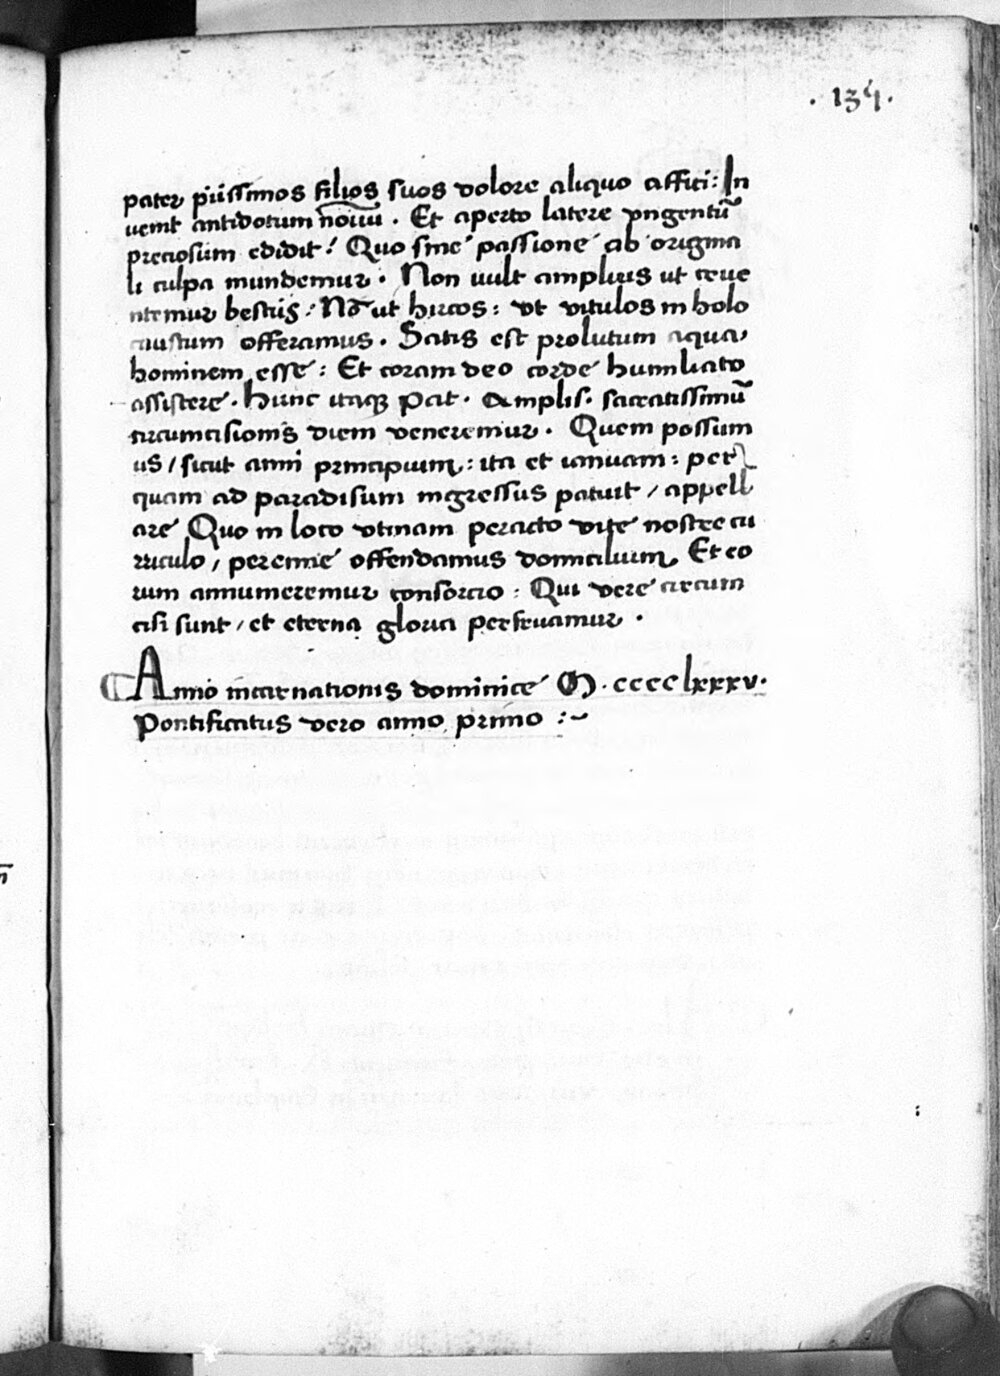 . 134 .
pater piissimos filios suos dolore aliquo affici: In
uenit antidotum nouu . Et aperto latere vngentū
preciosum edidit: Quo sine passione ab origina
li culpa mundemur. Non uult amplius ut creue
ntemur bestiis: Nō ut hircos: vt vitulos in holo
caustum offeramus. Satis est prolutum aqua
hominem esse: Et coram deo corde humiliato
assistere. Hunc itaqꝫ Pat. Amplis. sacratissimū
circumcisionis diem veneremur. Quem possum
us / sicut anni principium: ita et ianuam: per
quam ad paradisum ingressus patuit / appell
are Quo in loco vtinam peracto vite nostre cu
rriculo, perenne offendamus domicilium Et eo
rum annumeremur consorcio: Qui vere circum
cisi sunt, et eterna gloria perfruamur.
Anno incarnationis dominice M.cccclxxxv.
Pontificatus vero anno primo :~